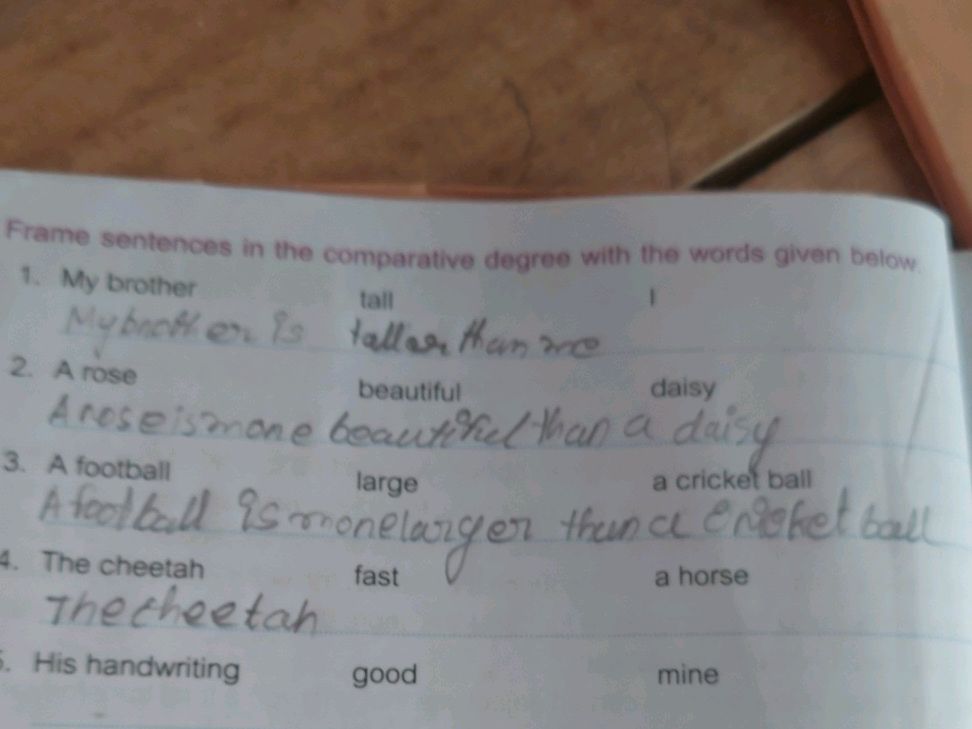 Frame sentences in the comparative degree with the words given below.
1. My brother tall I
My brother is taller than me
2. A rose beautiful daisy
A rose is more beautiful than a daisy
3. A football large a cricket ball
A football is more larger than a cricket ball
4. The cheetah fast a horse
The cheetah
5. His handwriting good mine